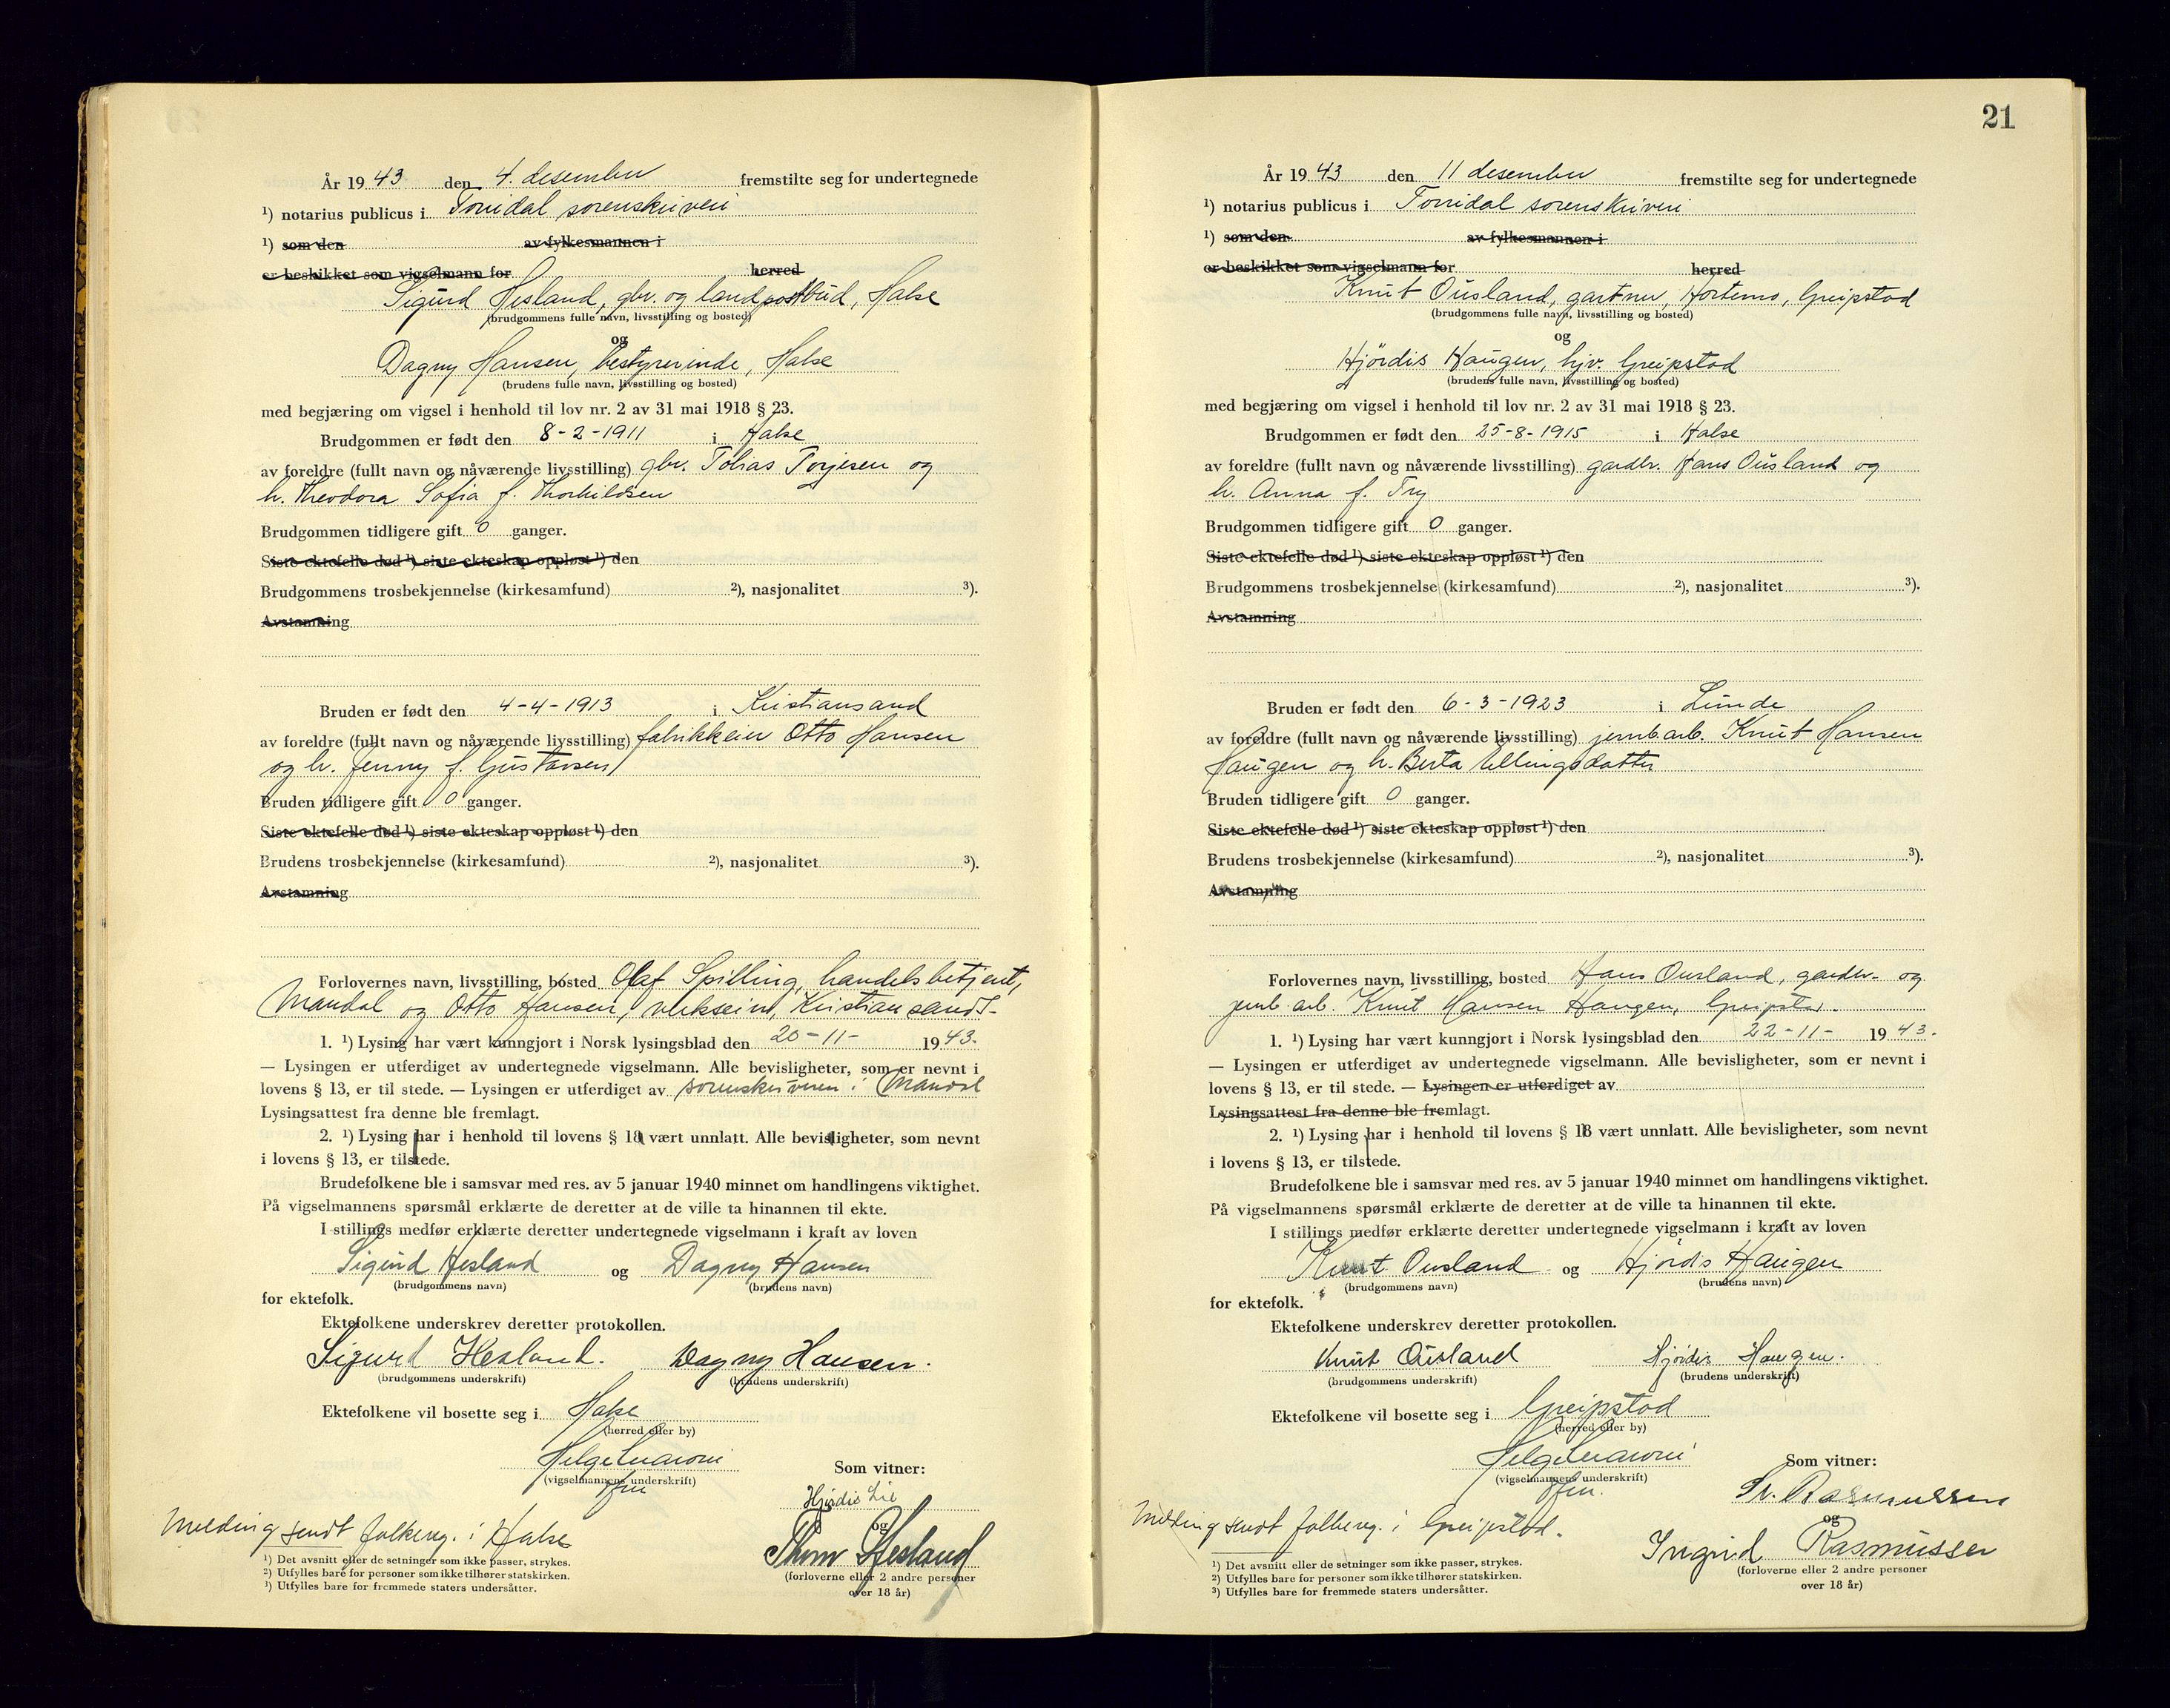 År 1943 den 4. desember fremstilte seg for undertegnede
¹) notarius publicus i Torridal sorenskriveri
¹) som den av fylkesmannen i
er beskikket som vigselmann for herred
Sigurd Hesland, gbr. og landpostbud, Halse
(brudgommens fulle navn, livsstilling og bosted)
og
Dagny Hansen, bestyrerinde, Halse
(brudens fulle navn, livsstilling og bosted)
med begjæring om vigsel i henhold til lov nr. 2 av 31 mai 1918 § 23.
Brudgommen er født den 8-2-1911 i Halse
av foreldre (fullt navn og nåværende livsstilling) gbr. Tobias Torjesen og
h. Theodora Sofia f. Thorkildsen
Brudgommen tidligere gift 0 ganger.
Siste ektefelle død ¹) siste ekteskap oppløst ¹) den
Brudgommens trosbekjennelse (kirkesamfund) ²), nasjonalitet ³).
Avstamning
Bruden er født den 4-4-1913 i Kristiansand
av foreldre (fullt navn og nåværende livsstilling) fabrikkeier Otto Hansen
og h. Jenny f. Gustavsen
Bruden tidligere gift 0 ganger.
Siste ektefelle død ¹) siste ekteskap oppløst ¹) den
Brudens trosbekjennelse (kirkesamfund) ²), nasjonalitet ³).
Avstamning
Forlovernes navn, livsstilling, bosted Olaf Spilling, handelsbetjent,
Mandal og Otto Hansen, Kristiansand S.
1. ¹) Lysing har vært kunngjort i Norsk lysingsblad den 20-11- 1943.
— Lysingen er utferdiget av undertegnede vigselmann. Alle bevisligheter, som er nevnt i
lovens § 13, er til stede. — Lysingen er utferdiget av sorenskriveren i Mandal
Lysingsattest fra denne ble fremlagt.
2. ¹) Lysing har i henhold til lovens § 18 vært unnlatt. Alle bevisligheter, som nevnt
i lovens § 13, er tilstede.
Brudefolkene ble i samsvar med res. av 5 januar 1940 minnet om handlingens viktighet.
På vigselmannens spørsmål erklærte de deretter at de ville ta hinannen til ekte.
I stillings medfør erklærte deretter undertegnede vigselmann i kraft av loven
Sigurd Hesland og Dagny Hansen
(brudgommens navn) (brudens navn)
for ektefolk.
Ektefolkene underskrev deretter protokollen.
Sigurd Hesland. Dagny Hansen.
(brudgommens underskrift) (brudens underskrift)
Ektefolkene vil bosette seg i Halse
(herred eller by)
(vigselmannens underskrift)
Som vitner:
Hjördis Lie
og
Thom Hesland
(forloverne eller 2 andre personer
over 18 år)
Melding sendt folkereg. i Halse
¹) Det avsnitt eller de setninger som ikke passer, strykes.
²) Utfylles bare for personer som ikke tilhører statskirken.
³) Utfylles bare for fremmede staters undersåtter.
21
År 1943 den 11 desember fremstilte seg for undertegnede
¹) notarius publicus i Torridal sorenskriveri
¹) som den av fylkesmannen i
er beskikket som vigselmann for herred
Knut Ousland, gartner, Hortemo, Greipstad
(brudgommens fulle navn, livsstilling og bosted)
og
Hjördis Haugen, hjv. Greipstad
(brudens fulle navn, livsstilling og bosted)
med begjæring om vigsel i henhold til lov nr. 2 av 31 mai 1918 § 23.
Brudgommen er født den 25-8-1915 i Halse
av foreldre (fullt navn og nåværende livsstilling) gardbr. Hans Ousland og
h. Anna f. Try
Brudgommen tidligere gift 0 ganger.
Siste ektefelle død ¹) siste ekteskap oppløst ¹) den
Brudgommens trosbekjennelse (kirkesamfund) ²), nasjonalitet ³).
Avstamning
Bruden er født den 6-3-1923 i Lunde
av foreldre (fullt navn og nåværende livsstilling) jernb.arb. Knut Hansen
Haugen og h. Berta Ellingsdatter
Bruden tidligere gift 0 ganger.
Siste ektefelle død ¹) siste ekteskap oppløst ¹) den
Brudens trosbekjennelse (kirkesamfund) ²), nasjonalitet ³).
Avstamning
Forlovernes navn, livsstilling, bosted Hans Ousland, gardbr. og
jernb. arb. Knut Hansen Haugen, Greipstad.
1. ¹) Lysing har vært kunngjort i Norsk lysingsblad den 22-11- 1943.
— Lysingen er utferdiget av undertegnede vigselmann. Alle bevisligheter, som er nevnt i
lovens § 13, er til stede. — Lysingen er utferdiget av
Lysingsattest fra denne ble fremlagt.
2. ¹) Lysing har i henhold til lovens § 18 vært unnlatt. Alle bevisligheter, som nevnt
i lovens § 13, er tilstede.
Brudefolkene ble i samsvar med res. av 5 januar 1940 minnet om handlingens viktighet.
På vigselmannens spørsmål erklærte de deretter at de ville ta hinannen til ekte.
I stillings medfør erklærte deretter undertegnede vigselmann i kraft av loven
Knut Ousland og Hjördis Haugen
(brudgommens navn) (brudens navn)
for ektefolk.
Ektefolkene underskrev deretter protokollen.
Knut Ousland Hjördis Haugen.
(brudgommens underskrift) (brudens underskrift)
Ektefolkene vil bosette seg i Greipstad
(herred eller by)
(vigselmannens underskrift)
Som vitner:
Rasmussen
og
Ingrid Rasmussen
(forloverne eller 2 andre personer
over 18 år)
Melding sendt folkereg. i Greipstad.
¹) Det avsnitt eller de setninger som ikke passer, strykes.
²) Utfylles bare for personer som ikke tilhører statskirken.
³) Utfylles bare for fremmede staters undersåtter.